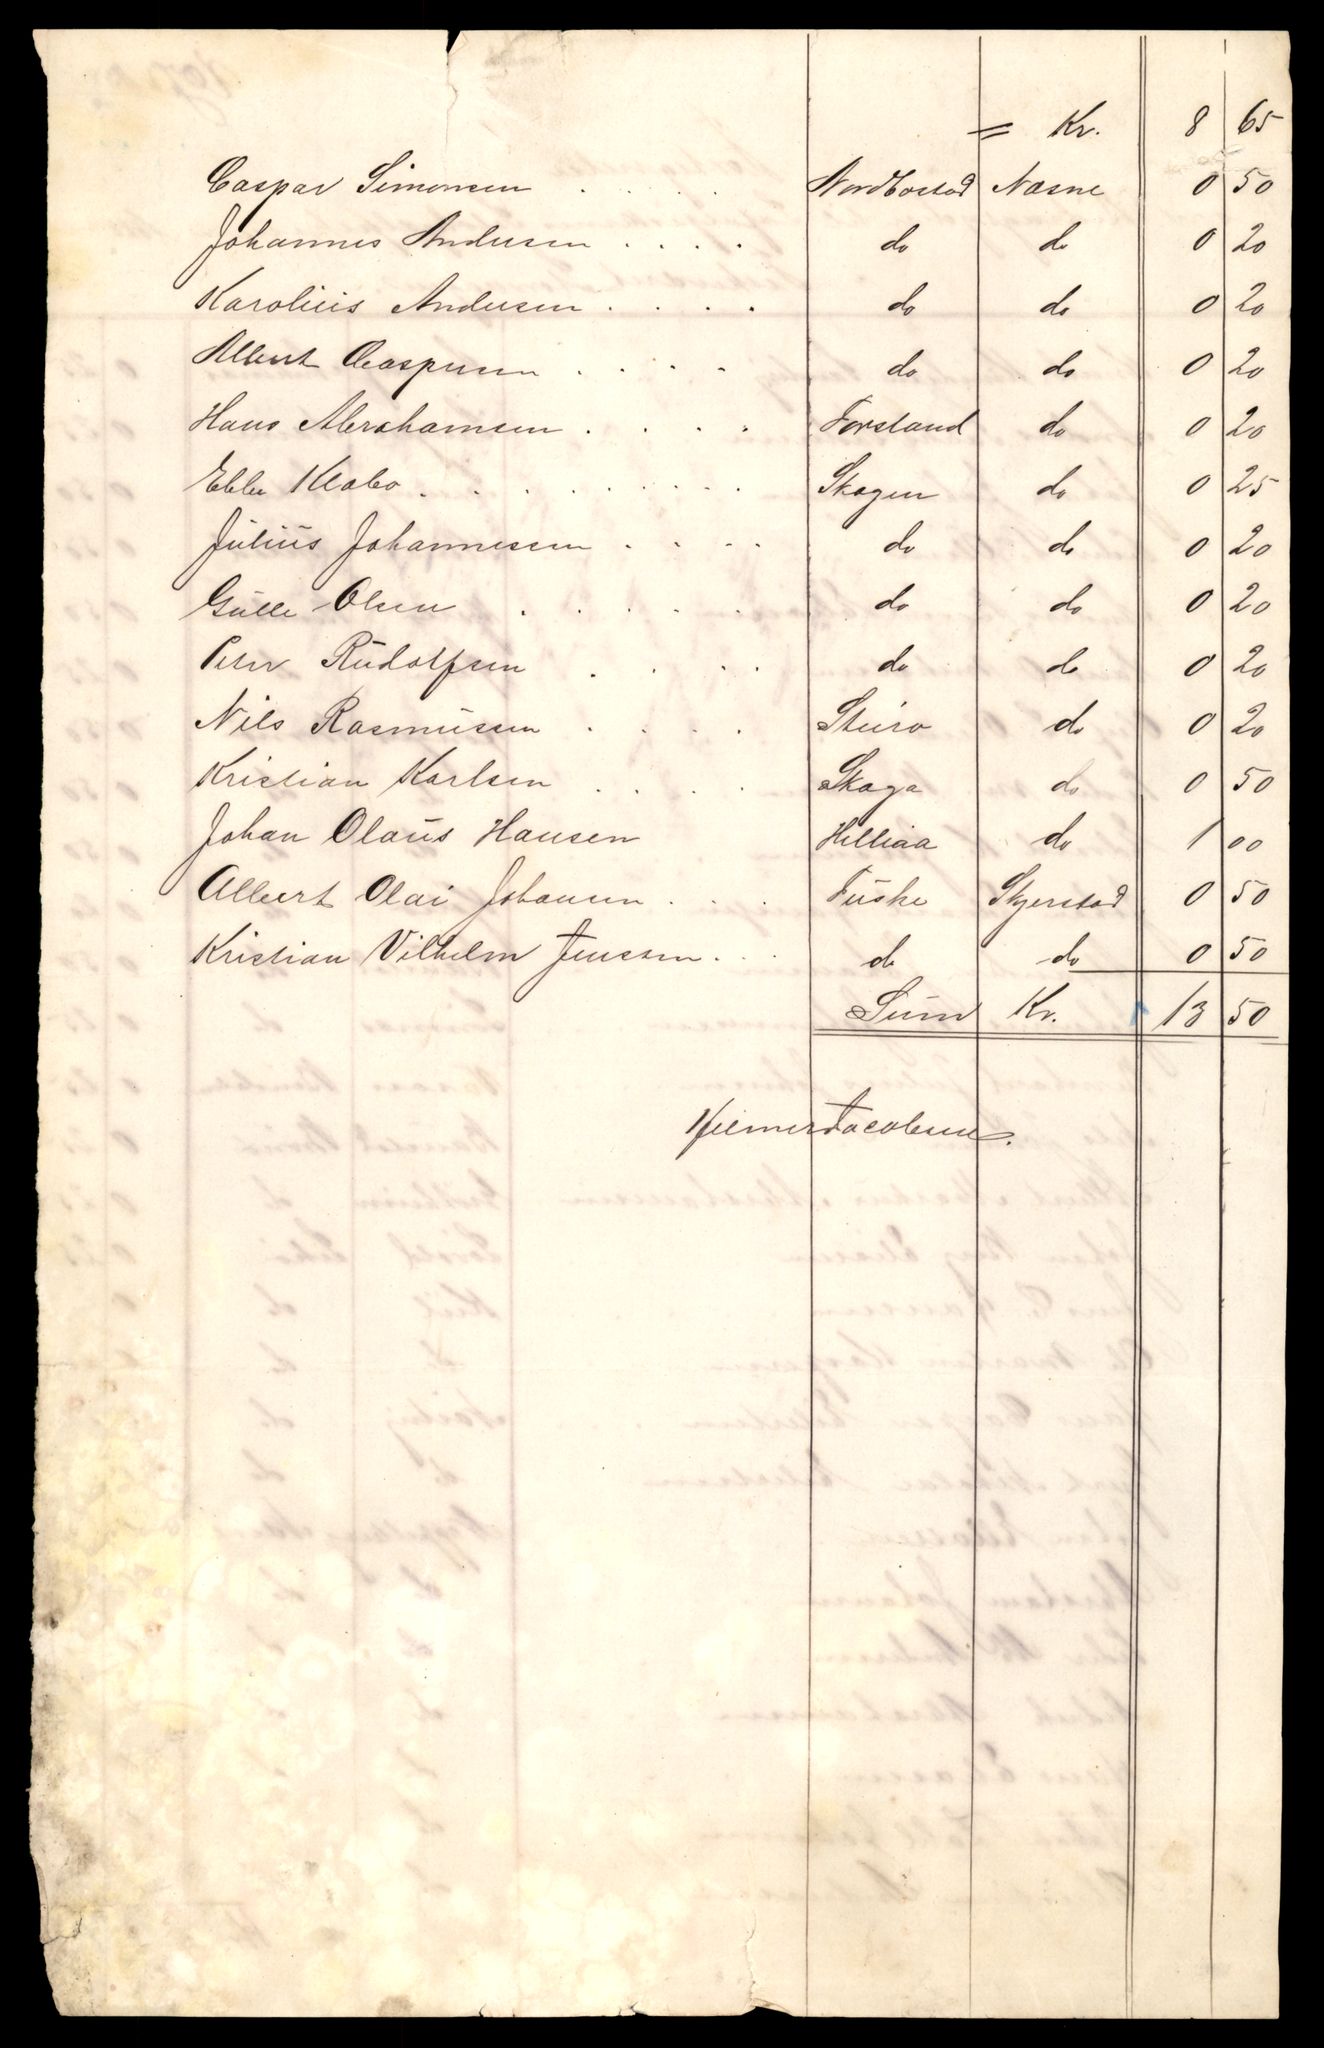 = Kr. 8 65
Caspar Simonsen . . . . Nordbostad Næsne 0 50
Johannes Andersen . . . . do do 0 20
Karolius Andersen . . . . do do 0 20
Albert Caspersen . . . . do do 0 20
Hans Abrahamsen . . . . Forsland do 0 20
Ebbe Klabo . . . . . . . . . Skagen do 0 25
Julius Johannessen . . . . do do 0 20
Gulle Olsen . . . . . do do 0 20
Peter Rudolfsen . . . . do do 0 20
Nils Rasmussen . . . . Steiro do 0 20
Kristian Karlsen . . . . Skaga do 0 50
Johan Olaus Hansen Hilliaa do 1 00
Albert Olai Johansen . . . Fuske Skjerstad 0 50
Kristian Vilhelm Jenssen . . . do do 0 50
Sum Kr. 13 50
Hilmer Jacobsen.